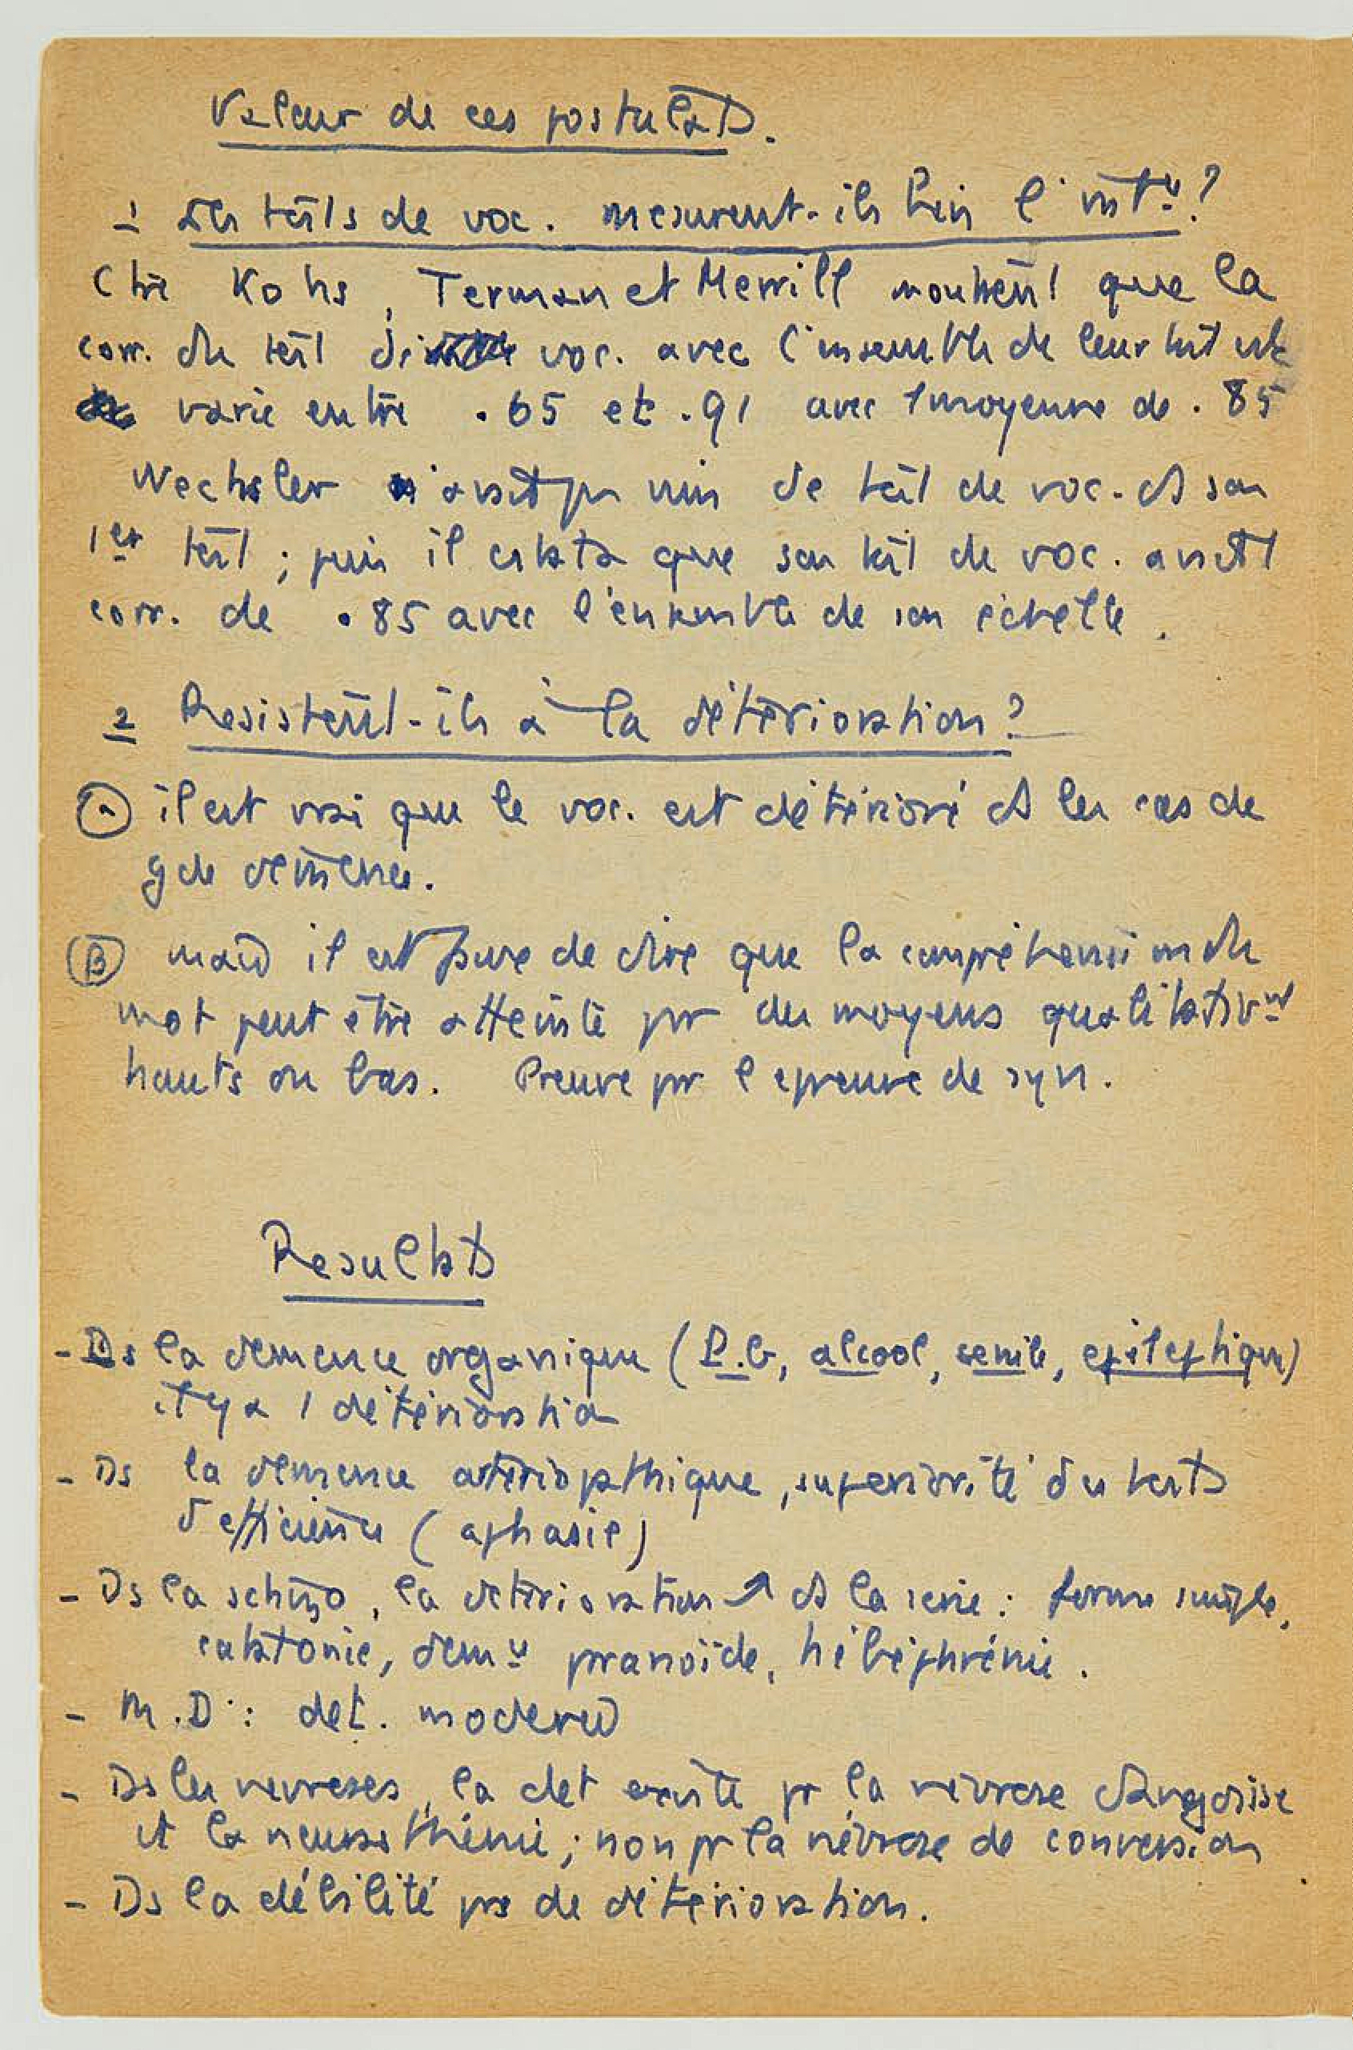 Valeur de ces postulats.
1 Les tests de voc. mesurent-ils bien l'intce?
Ctre Kohs, Terman et Merrill montrent que la
corr. du test de voc. avec l'ensemble de leur test
varie entre .65 et .91 avec 1 moyenne de .85
Wechsler n'avait pas mis de test de voc. ds son
1er test; puis il csta que son test de voc. avait 1
corr. de .85 avec l'ensemble de son échelle.
2 Resistent-ils à la détérioration?
A il est vrai que le voc. est détérioré ds les cas de
gde démence.
B mais il est de dire que la compréhension du
mot peut être atteinte par des moyens qualitativt
hauts ou bas. Preuve par l'epreuve de syn.
Resultats
- Ds la demence organique (P.G, alcool, senile, epileptique)
il y a 1 détérioration
- Ds la demence artériopathique, supériorité des tests
d'efficience (aphasie)
- Ds la schizo, la detérioration ↗ ds la serie: forme simple,
catatonie, demce paranoïde, hébéphrénie.
- M.D: det. moderee
- Ds les nevroses, la det existe pr la névrose d'angoisse
et la neurasthénie; non pr la névrose de conversion
- Ds la débilité pas de détérioration.